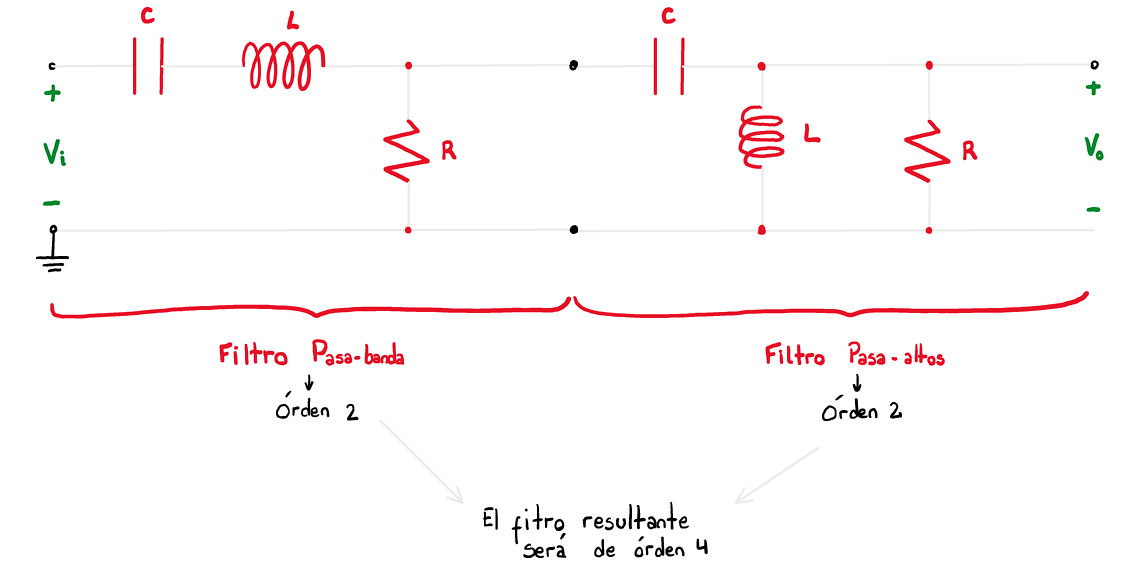 C
L
C
+
Vi
-
R
L
R
+
Vo
-
Filtro Pasa-banda
Órden 2
Filtro Pasa-altos
Órden 2
El fitro resultante
será de órden 4